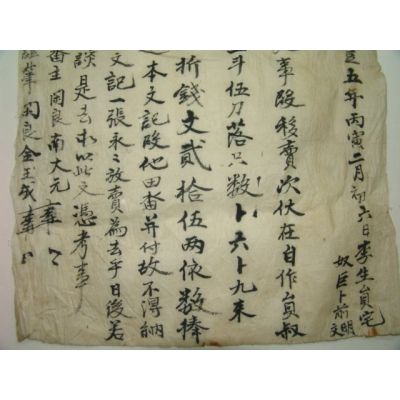 五年丙寅二月初六日李生員宅
奴巨卜前明文
事段移賣次伏在自作員叔
斗伍刀落只数卜六卜九束
折錢文貳拾伍兩依数捧
本文記段他田畓并付故不得納
文記一張永〻放賣為去乎日後若
談是去木以此文憑考事
畓主閑良南大元
筆閑良金